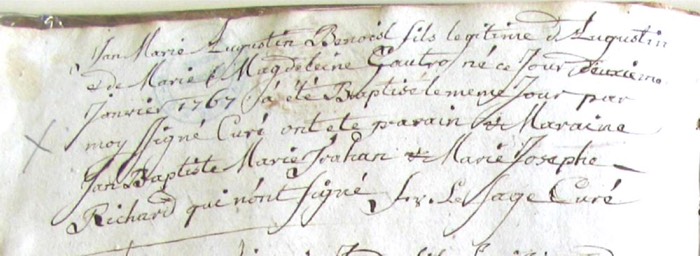 Jan Marie Augustin Benoist fils legitime d Augustin
& de Marie Magdeleine Gautro né ce Jour deuxieme
Janvier 1767 a été Baptisé le meme Jour par
moy Signé Curé ont ete parain & Maraine
Jan Baptiste Marie Trahan & Marie Josephe
Richard qui n'ont signé Le Sage Curé